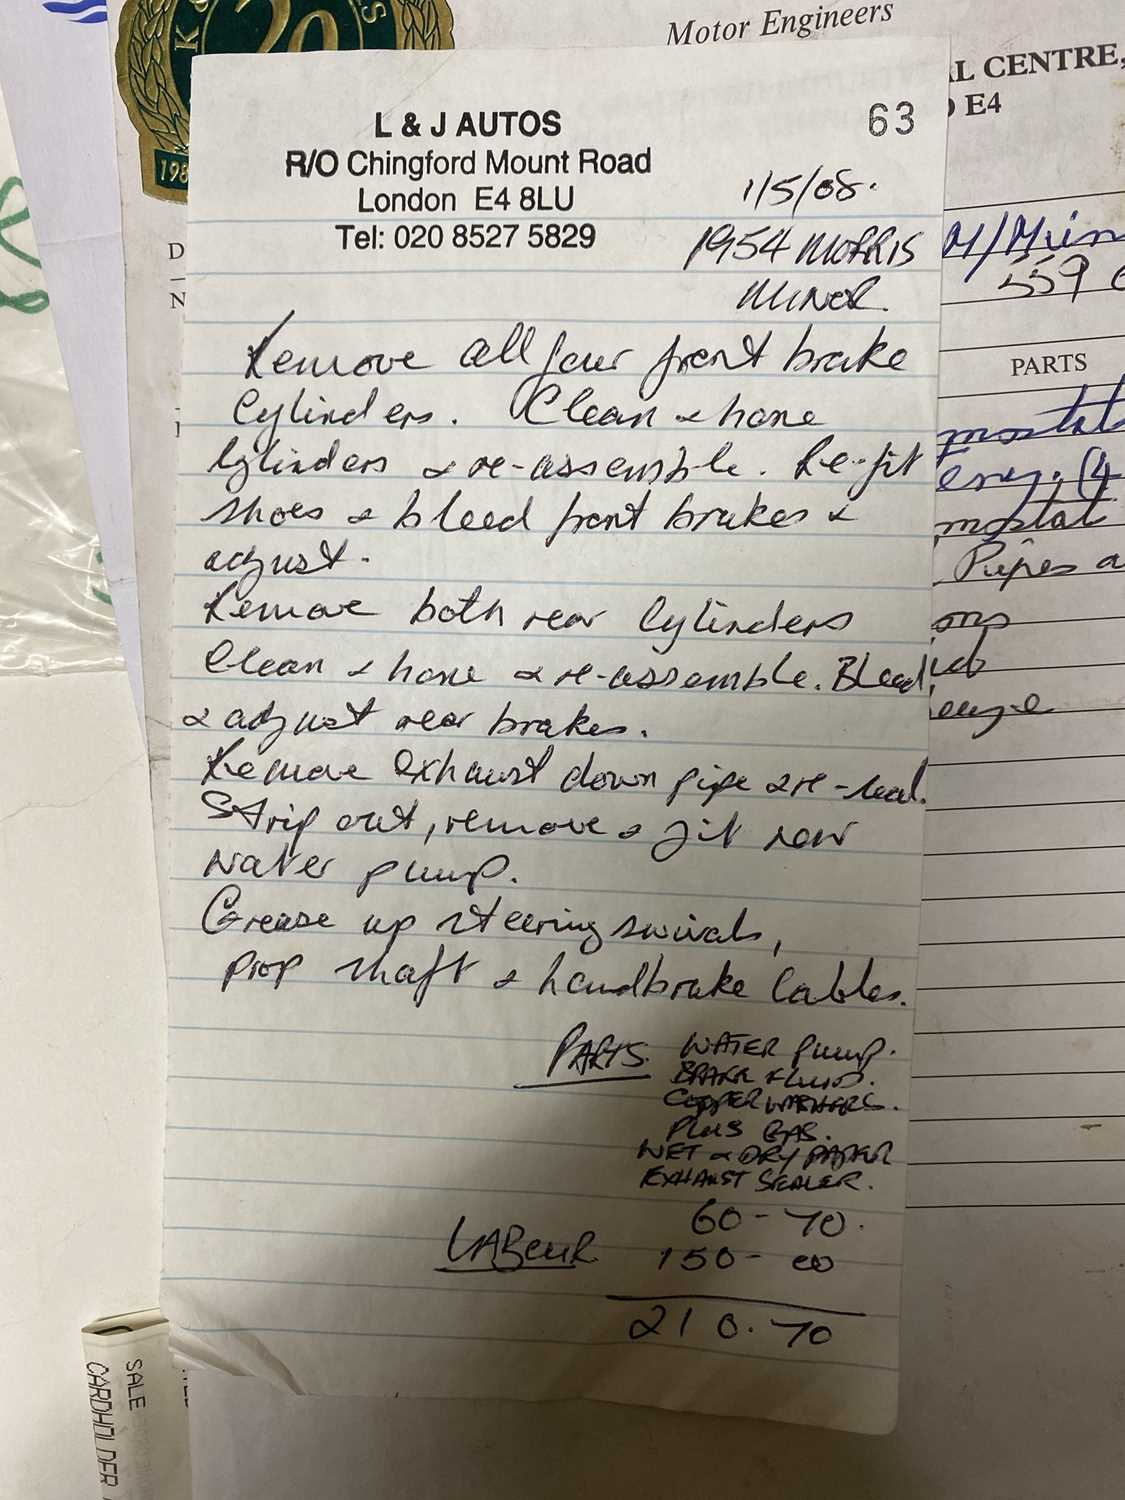 K
S
20
198
Motor Engineers
AL CENTRE,
E4
L & J AUTOS
63
R/O Chingford Mount Road
London E4 8LU
Tel: 020 8527 5829
1/5/08.
1954 MORRIS
MINOR.
M/Min
559
D
N
PARTS
Remove all four front brake
Cylinders. Clean & hone
Cylinders & re-assemble. Re-fit
shoes & bleed front brakes &
adjust.
Remove both rear Cylinders
Clean & hone & re-assemble. Bleed
& adjust rear brakes.
Remove exhaust down pipe & re-seal.
Strip out, remove & fit new
Water pump.
Grease up steering swivals,
prop shaft & handbrake Cables.
mostat
(4
mostat
Pipes a
PARTS. WATER Pump.
BRAKE FLUID.
COPPER WASHERS.
PLUS GAS.
WET & DRY PAPER
EXHAUST SEALER.
60-70.
LABOUR 150-00
210.70
SALE
CARDHOLDER